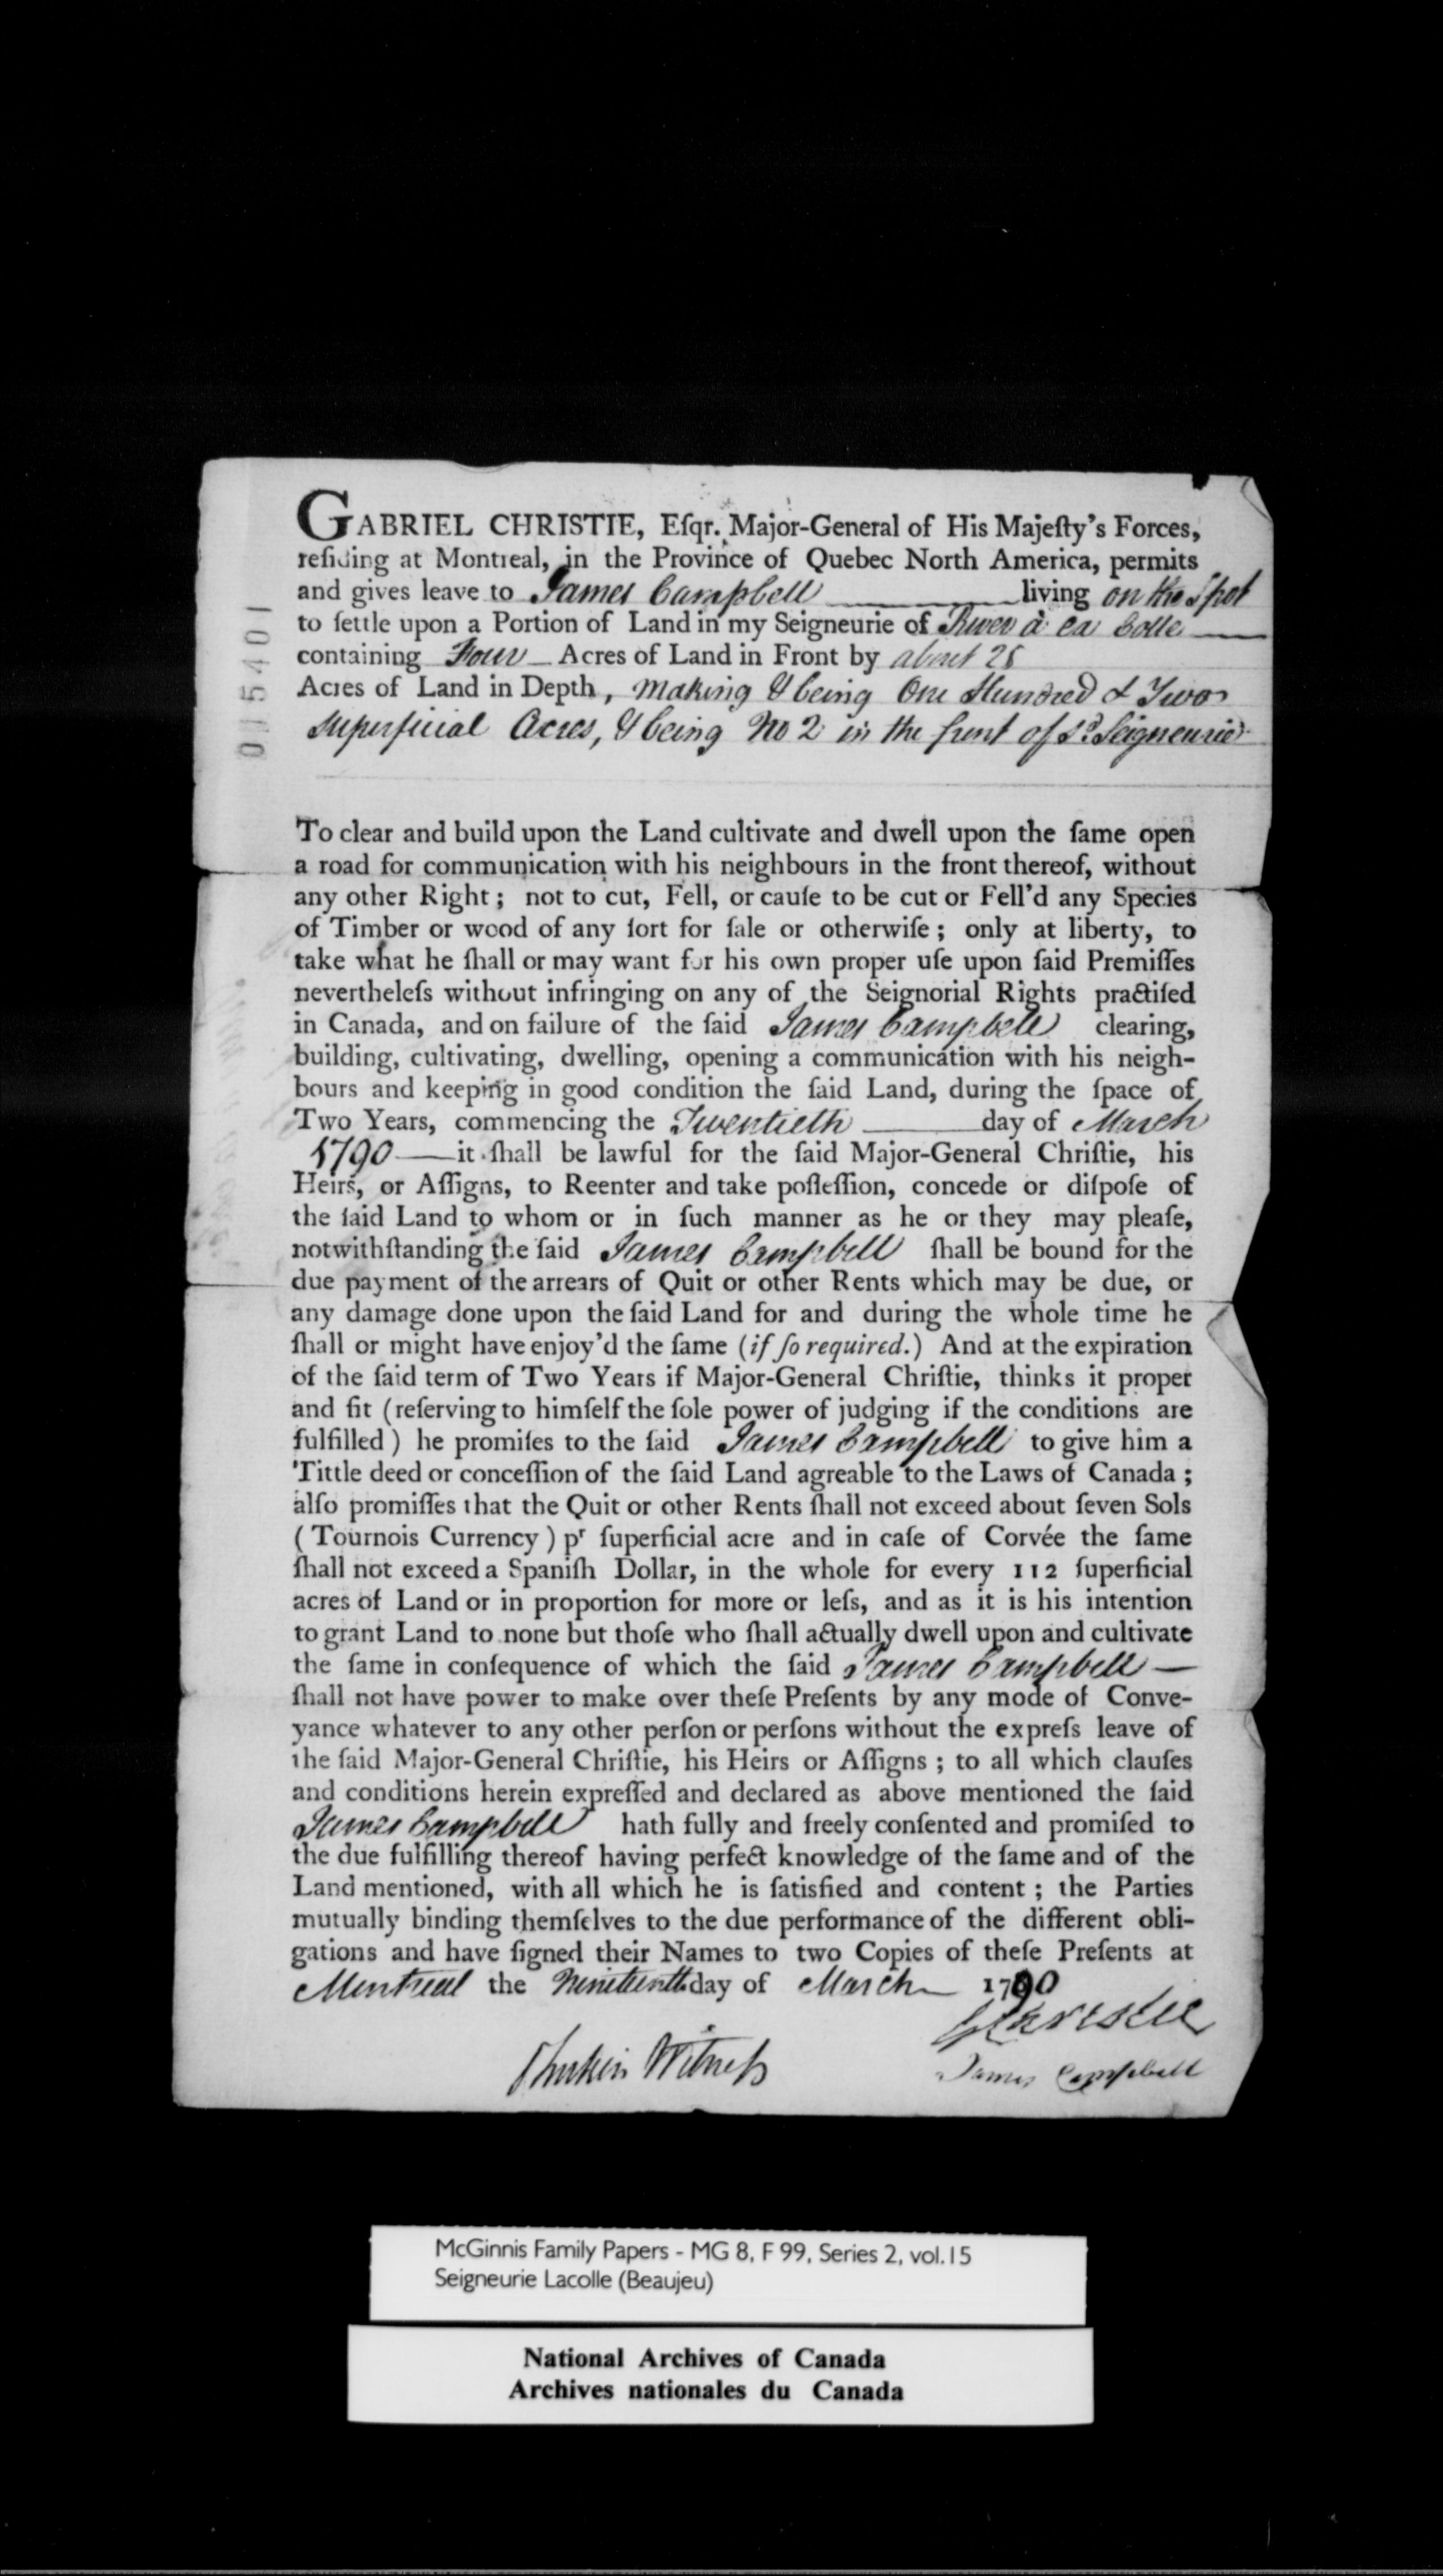 GABRIEL CHRISTIE, Eſqr. Major-General of His Majeſty's Forces,
reſiding at Montreal, in the Province of Quebec North America, permits
and gives leave to James Campbell living on the Spot
to ſettle upon a Portion of Land in my Seigneurie of River à La Colle
containing Four Acres of Land in Front by about 28
Acres of Land in Depth, making & being One Hundred & Two
superficial Acres, & being No 2 in the front of sd. Seigneurie
To clear and build upon the Land cultivate and dwell upon the ſame open
a road for communication with his neighbours in the front thereof, without
any other Right; not to cut, Fell, or cauſe to be cut or Fell'd any Species
of Timber or wood of any ſort for ſale or otherwiſe; only at liberty, to
take what he ſhall or may want for his own proper uſe upon ſaid Premiſſes
nevertheleſs without infringing on any of the Seignorial Rights practiſed
in Canada, and on failure of the ſaid James Campbell clearing,
building, cultivating, dwelling, opening a communication with his neigh-
bours and keeping in good condition the ſaid Land, during the ſpace of
Two Years, commencing the Twentieth day of March
1790 it ſhall be lawful for the ſaid Major-General Chriſtie, his
Heirs, or Aſſigns, to Reenter and take poſſeſſion, concede or diſpoſe of
the ſaid Land to whom or in ſuch manner as he or they may pleaſe,
notwithſtanding the ſaid James Campbell ſhall be bound for the
due payment of the arrears of Quit or other Rents which may be due, or
any damage done upon the ſaid Land for and during the whole time he
ſhall or might have enjoy'd the ſame (if ſo required.) And at the expiration
of the ſaid term of Two Years if Major-General Chriſtie, thinks it proper
and fit (reſerving to himſelf the ſole power of judging if the conditions are
fulfilled) he promiſes to the ſaid James Campbell to give him a
Tittle deed or conceſſion of the ſaid Land agreable to the Laws of Canada;
alſo promiſſes that the Quit or other Rents ſhall not exceed about ſeven Sols
(Tournois Currency) pr ſuperficial acre and in caſe of Corvée the ſame
ſhall not exceed a Spaniſh Dollar, in the whole for every 112 ſuperficial
acres of Land or in proportion for more or leſs, and as it is his intention
to grant Land to none but thoſe who ſhall actually dwell upon and cultivate
the ſame in conſequence of which the ſaid James Campbell
ſhall not have power to make over theſe Preſents by any mode of Conve-
yance whatever to any other perſon or perſons without the expreſs leave of
the ſaid Major-General Chriſtie, his Heirs or Aſſigns; to all which clauſes
and conditions herein expreſſed and declared as above mentioned the ſaid
James Campbell hath fully and freely conſented and promiſed to
the due fulfilling thereof having perfect knowledge of the ſame and of the
Land mentioned, with all which he is ſatisfied and content; the Parties
mutually binding themſelves to the due performance of the different obli-
gations and have ſigned their Names to two Copies of theſe Preſents at
Montreal the Nineteenth day of March 1790
G Christie
Witneſs
James Campbell
015401
McGinnis Family Papers - MG 8, F 99, Series 2, vol.15
Seigneurie Lacolle (Beaujeu)
National Archives of Canada
Archives nationales du Canada